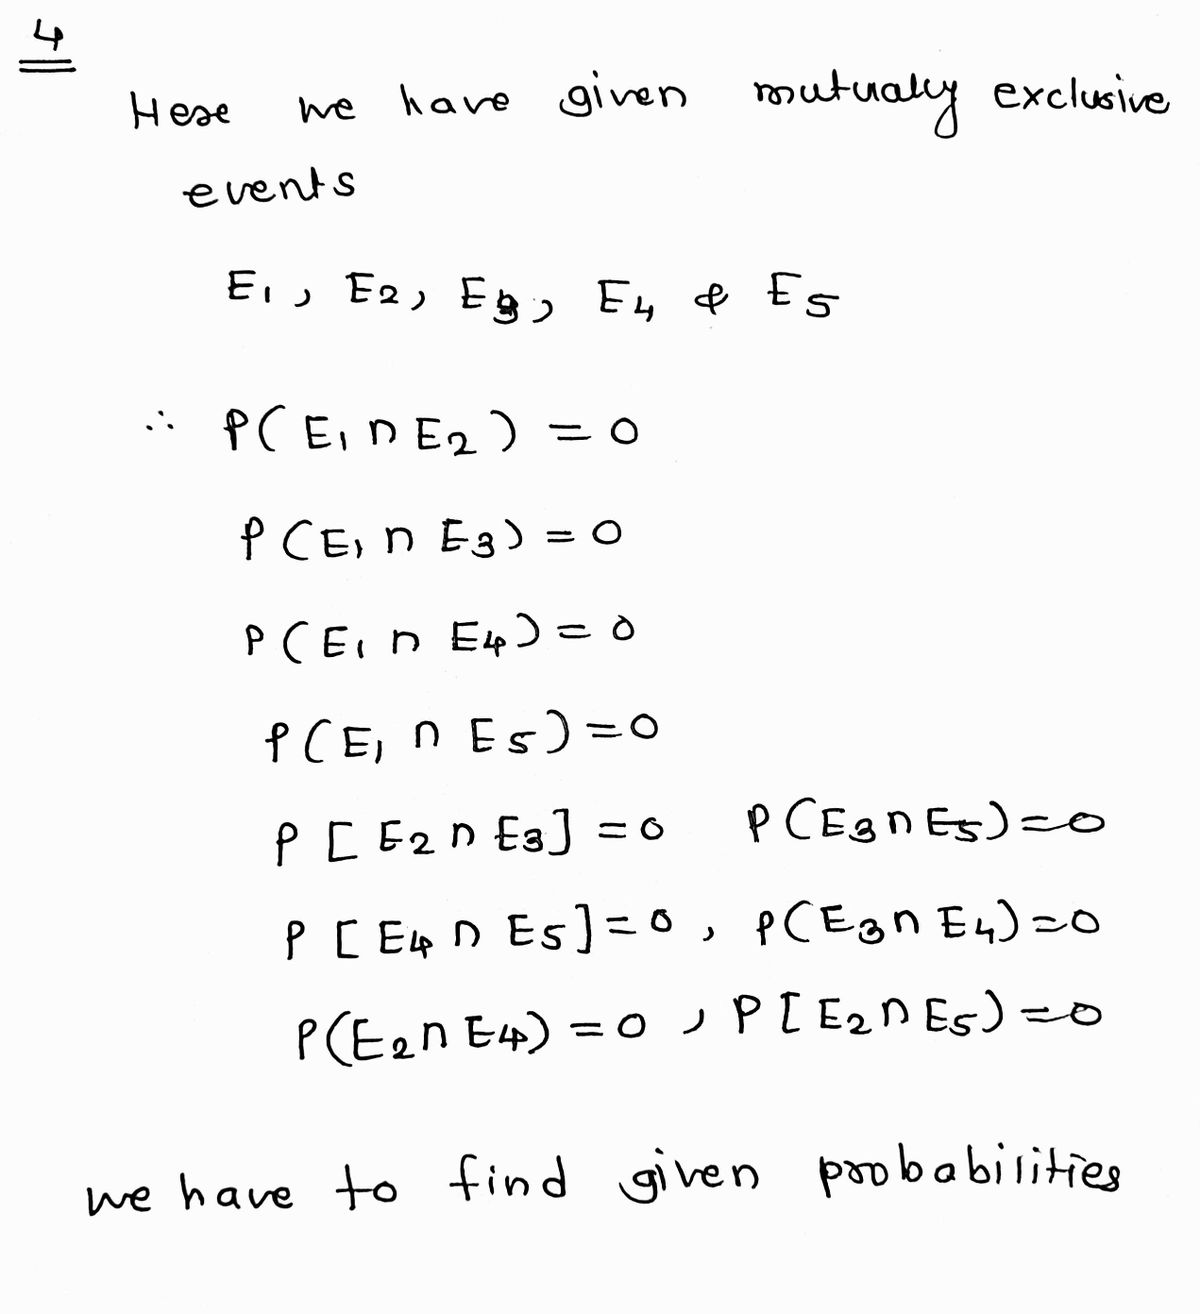 4
Here we have given mutualy exclusive
events
E1, E2, E3, E4 & E5
∴ P(E1 ∩ E2) = 0
P(E1 ∩ E3) = 0
P(E1 ∩ E4) = 0
P(E1 ∩ E5) = 0
P[E2 ∩ E3] = 0 P(E3 ∩ E5) = 0
P[E4 ∩ E5] = 0, P(E3 ∩ E4) = 0
P(E2 ∩ E4) = 0, P[E2 ∩ E5) = 0
we have to find given probabilities